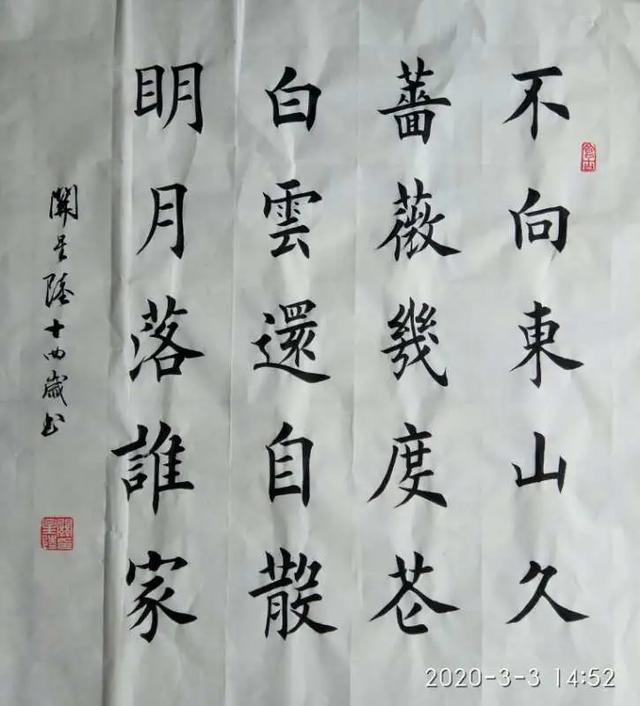 不向東山久
薔薇幾度花
白雲還自散
眀月落誰家
關星陸十四歲书
2020-3-3 14:52